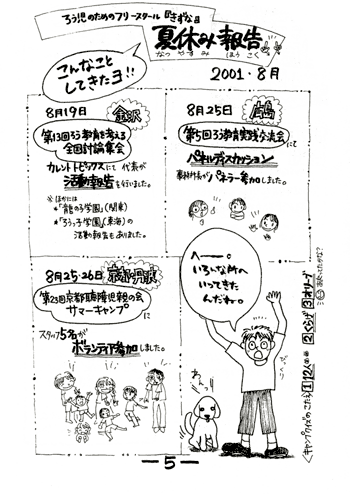 ろう児のためのフリースクール『きずな』
夏休み報告
なつやすみ ほうこく
2001・8月
こんなこと
してきたヨ!!
8月19日 金沢
第13回ろう教育を考える
全国討論集会
カレントトピックスにて 代表が
活動報告を行いました。
※ほかには
・「龍の子学園」(関東)
・「ろうっ子学園」(東海)の
活動報告もありました。
8月25日 広島
第5回ろう教育実践交流会
にて
パネルディスカッション
パネラー参加しました。
8月25・26日 京都・丹波
第23回京都聴障児親の会
サマーキャンプ
に
スタッフ5名が
ボランティア参加しました。
へー。
いろんな所へ
いってきた
んだねー。
びっくり
キャンプクイズのこたえ
①12人
③オリーブ
- 5 -